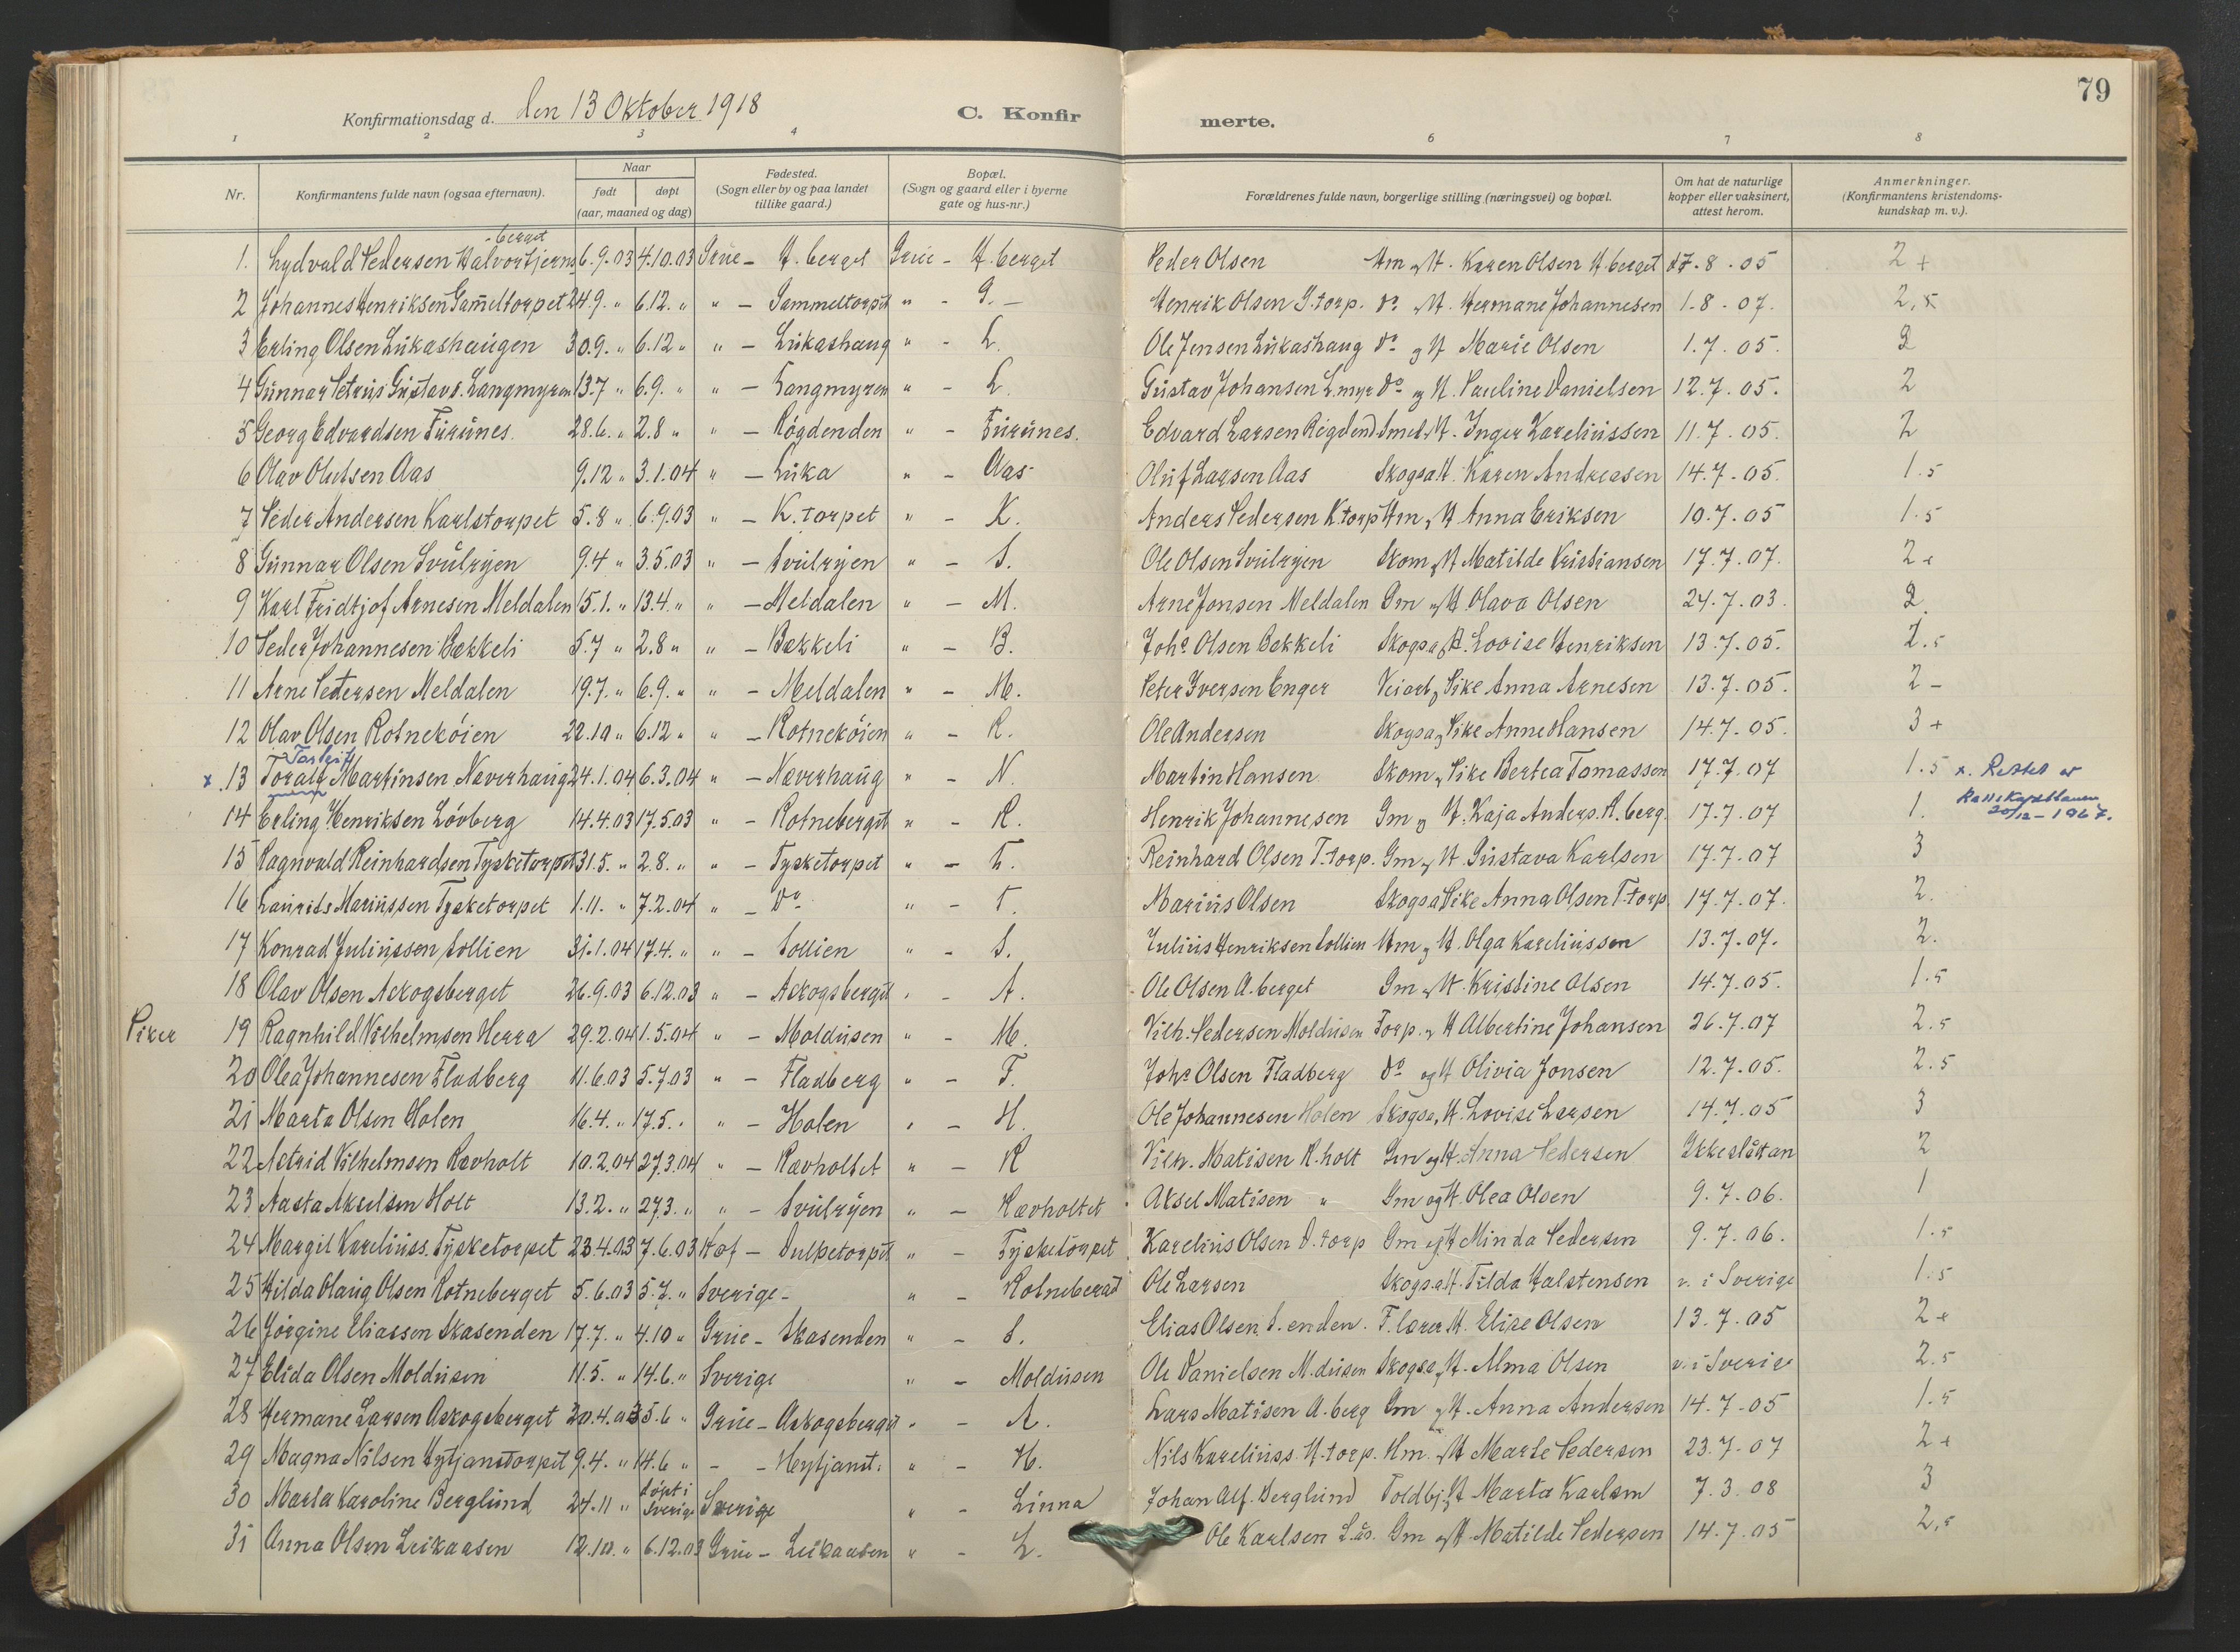 79
Konfirmationsdag d. den 13 Oktober 1918 C. Konfir merte.
1 2 3 4 6 7 8
Nr. Konfirmantens fulde navn (ogsaa efternavn). Naar født døpt (aar, maaned og dag) Fødested. (Sogn eller by og paa landet tillike gaard.) Bopæl. (Sogn og gaard eller i byerne gate og hus-nr.) Forældrenes fulde navn, borgerlige stilling (næringsvei) og bopæl. Om hat de naturlige kopper eller vaksinert, attest herom. Anmerkninger. (Konfirmantens kristendoms-kundskap m. v.).
-berget
1. Lydvald Pedersen Halvortjerns 6.9.03 4.10.03 Grue - H. berget Grue - H. berget Peder Olsen Hm og H. Karen Olsen H. berget 27-8-05 2+
2 Johannes Henriksen Gam̄eltorpet 24.9. " 6.12. " " - Gammeltorpet " - G. - Henrik Olsen G.torp. do og H. Hermane Johannesen 1-8-07.
3 Erling Olsen Lukashaugen 30.9. " 6.12 " " - Lukashaug " - L. Ole Jensen Lukashaug do og H Marie Olsen 1.7.05. 2
4 Gunnar Petrus Gustavs. Langmyren 13.7 " 6.9. " " - Langmyren " - L. Gustav Johansen L.myr do og H. Pauline Danielsen 12.7.05. 2
5 Georg Edvardsen Furunes. 28.6. " 2.8 " " - Røgdenden " - Furunes. Edvard Larsen Røgdend. Smed og H. Inger Kareliussen 11.7.05. 2
6 Olav Olufsen Aas 9.12 " 3.1.04 " - Luka " - Aas Oluf Larsen Aas Skogsa. H. Karen Andreasen 14.7.05. 1.5
7 Peder Andersen Karlstorpet 5.8 " 6.9.03 " - K. torpet " - K. Anders Pedersen K.torp Hm og H Anna Eriksen 10.7.05 1.5
8 Gunnar Olsen Svulryen 9.4 " 3.5.03 " - Svulryen " - S. Ole Olsen Svulryen Skom og H Matilde Kristiansen 17.7.07. 2+
9 Karl Fridtjof Arnesen Meldalen 15.1. " 13.4. " " - Meldalen " - M. Arne Jonsen Meldalen Gm og H Olava Olsen 24.7.03. 2.
10 Peder Johannesen Bækkeli 5.7 " 2.8 " " - Bækkeli " - B. Johs. Olsen Bækkeli Skogsa og H. Lovise Henriksen 13.7.05.
11 Arne Petersen Meldalen 19.7. " 6.9. " " - Meldalen " - M. Peter Iversen Enger Veiarb. og Pike Anna Arnesen 13.7.05. 2-
12 Olav Olsen Rotneköien 22.10 " 6.12 " " - Rotneköien " - R. Ole Andersen Skogsa og Pike Anne Hansen 14.7.05. 3+
Torleif
x 13 Toralf Martinsen Næverhaug 24.1.04 6.3.04 " - Næverhaug " - N. Martin Hansen Skom og Pike Bertea Tomassen 17.7.07 1.5 x. Rettet
14 Erling Henriksen Lövberg 14.4.03 17.5.03 " - Rotneberget " - R. Henrik Johannesen Gm og H. Kaja Anders. R. berg. 17.7.07 1. 20/12-1967.
15 Ragnvald Reinhardsen Tysketorpet 31.5. " 2.8. " " - Tysketorpet " - T. Reinhard Olsen T-torp. Gm og H Gustava Karlsen 17.7.07 3
16 Laurits Mariussen Tysketorpet 1.11. " 7.2.04 " - do " - T. Marius Olsen Skogsa Pike Anna Olsen T-torp 17.7.07. 2.
17 Konrad Juliussen Sollien 31.1.04 17.4. " " - Sollien " - S. Julius Henriksen Sollien Hm og H. Olga Kareliussen 13.7.07. 2.
18 Olav Olsen Askogsberget 26.9.03 6.12.03 " - Askogsberget " - A. Ole Olsen A. berget Gm og H. Kristine Olsen 14.7.05. 1.5
Piker 19 Ragnhild Vilhelmsen Herra 29.2.04 1.5.04 " - Moldusen " - M. Vilh. Pedersen Moldusen Torp. og H Albertine Johansen 26.7.07 2.5
20 Olea Johannesen Fladberg 11.6.03 5.7.03 " - Fladberg " - F. Johs Olsen Fladberg do og H Olivia Jonsen 12.7.05. 2.5
21 Marta Olsen Holen 16.4. " 17.5. " " - Holen " - H. Ole Johannesen Holen Skogsa, H. Lovise Larsen 14.7.05 3
22 Astrid Vilhelmsen Rævholt 10.2.04 27.3.04 " - Rævholtet " - R Vilh. Matisen R.holt Gm og H. Anna Pedersen Ikke slått an 2
23 Aasta Akselsen Holt 13.2. " 27.3. " " - Svulryen " - Rævholtet Aksel Matisen " Gm og H. Olea Olsen 9.7.06. 1
24 Margit Kareliuss. Tysketorpet 23.4.03 7.6.03 Hof - Dulpetorpet " - Tysketorpet Karelius Olsen D.torp Gm og H Minda Pedersen 9.7.06. 1.5
25 Hilda Olaug Olsen Rotneberget 5.6.03 5.7. " Sverige - " - Rotneberget Ole Larsen Skogsa. H. Tilda Halstensen v. i Sverige 1.5
26 Jørgine Eliassen Skasenden 17.7. " 4.10 " Grue - Skasenden " - S. Elias Olsen S. enden. F. lærer H. Elise Olsen 13.7.05 2+
27 Elida Olsen Moldusen 11.5. " 14.6. " Sverige " - Moldusen Ole Danielsen M.dusen Skogsa og H. Alma Olsen v. i Sverige 2.5
28 Hermane Larsen Askogsberget 20.4.03 5.6 " Grue - Askogsberget " - A. Lars Matisen A. berg Gm og H. Anna Andersen 14.7.05 1.5
29 Magna Nilsen Hytjanstorpet 9.4. " 14.6 " - - Hytjanst. " - H. Nils Kareliuss. H-torp. Hm. og H Marte Pedersen 23.7.07 2+
30 Marta Karoline Berglund 24.11 " döpt i Sverige Sverige " - Linna Johan Alf. Berglund Toldbj. og H Marta Karlsen 7.3.08 3
31 Anna Olsen Leikaasen 12.10. " 6.12.03 Grue - Leikaasen " - L. Ole Karlsen L.ås. Gm og H. Matilde Pedersen 14.7.05